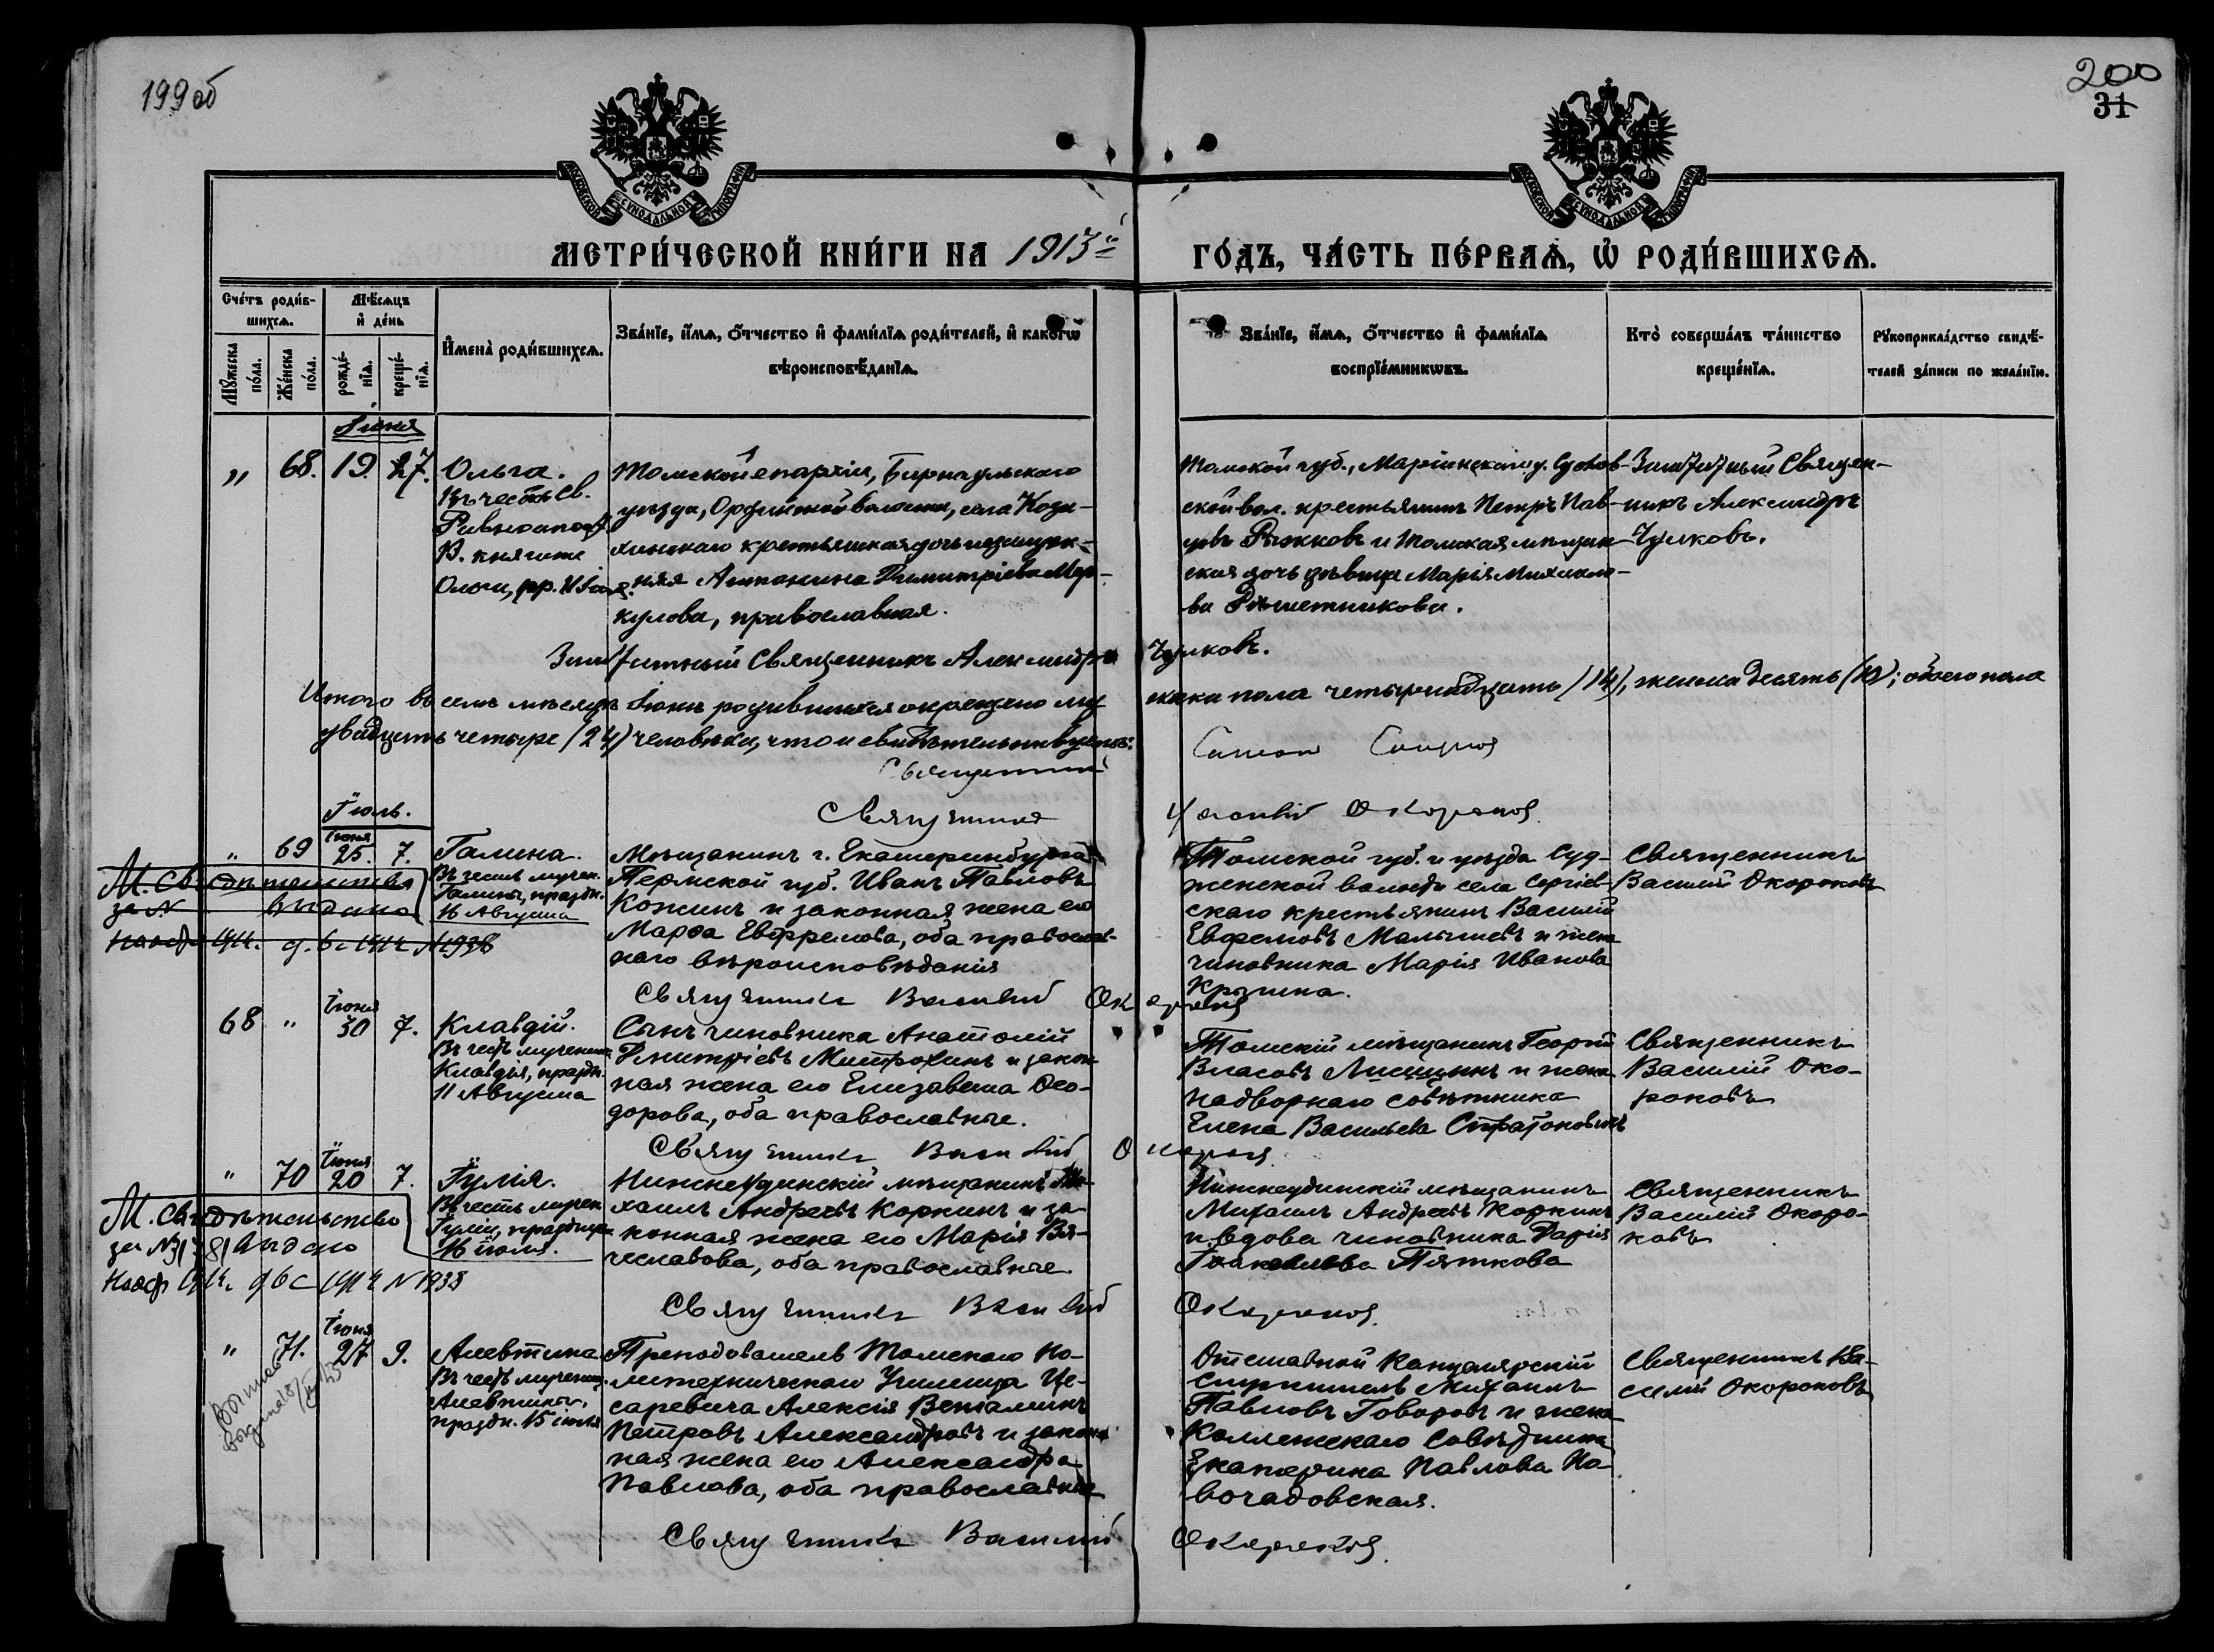 199об
200
31
МОСКОВСКОЙ СУНОДАЛЬНОЙ ТИПОГРАФІИ
МОСКОВСКОЙ СУНОДАЛЬНОЙ ТИПОГРАФІИ
МЕТРИ́ЧЕСКОЙ КНИ́ГИ НА 1913й
ГО́ДЪ, ЧА́СТЬ ПЕ́РВАѦ, Ѡ҆ РОДИ́ВШИХСѦ.
Сче́тъ роди́в-
шихсѧ.
Мѣ́сѧцъ
и҆ де́нь
Мꙋ́жеска
по́ла.
Же́нска
по́ла.
рожде́-
нїѧ.
креще́-
нїѧ.
И҆мена̀ роди́вшихсѧ.
Зва́нїе, и҆́мѧ, ѻ҆́тчество и҆ фами́лїѧ роди́телей, и҆ како́гѡ
вѣроисповѣ́данїѧ.
Зва́нїе, и҆́мѧ, ѻ҆́тчество и҆ фами́лїѧ
воспрїе́мникѡвъ.
Кто̀ соверша́лъ та́инство
креще́нїѧ.
Рꙋкоприкла́дство свидѣ́-
телей за́писи по жела́нїю.
Іюня
" 68. 19. 27. Ольга.
Въ честь Св.
Равноапост.
В. княгини
Ольги, пр. 11 Іюля.
Томской епархіи, Барнаульскаго
уѣзда, Ординской волости, села Коза-
хинскаго крестьянская дочь незамуж-
няя Антонина Димитріева Мер-
кулова, православная.
Томской губ., Маріинскаго у. Судов-
ской вол. крестьянинъ Петръ Пав-
ловъ Рыжковъ и Томская мѣщан-
ская дочь дѣвица Марія Михаило-
ва Рѣшетникова.
Заштатный Священ-
никъ Александръ
Чулковъ.
Заштатный Священникъ Александръ Чулковъ.
Итого въ семъ мѣсяцѣ Іюнѣ родившихся окрещено му
жска пола четырнадцать (14), женска десять (10); обоего пола
двадцать четыре (24) человѣка, что и свидѣтельствуемъ:
Священникъ
Священникъ Василій Окороковъ
Іюль.
" 69 Іюня 25. 7. Галина.
Въ честь мучен.
Галины, праздн.
16 Августа
Мѣщанинъ г. Екатеринбурга
Пермской губ. Иванъ Павловъ
Кожинъ и законная жена его
Марѳа Евфремова, оба православ-
наго вѣроисповѣданія
Томской губ. и уѣзда Суд-
женской волости села Сергіев-
скаго крестьянинъ Василій
Евфремовъ Малышевъ и жена
чиновника Марія Иванова
Крупина.
Священникъ
Василій Окороковъ
М. Свидѣтельство
за № выдано
1914. д. 6 с 1914 №1938
Священникъ Василій Окороковъ
68 " Іюня 30 7. Клавдій.
Въ честь мученика
Клавдія, праздн.
11 Августа
Сынъ чиновника Анатолій
Димитріевъ Митрохинъ и закон-
ная жена его Елизавета Ѳео-
дорова, оба православные.
Томскій мѣщанинъ Георгій
Власовъ Лисицынъ и жена
надворнаго совѣтника
Елена Васильева Стратоновичъ
Священникъ
Василій Око-
роковъ
Священникъ Василій Окороковъ
" 70 Іюня 20 7. Іулія.
Въ честь мучен.
Іуліи, праздную
16 іюля.
Нижнеудинскій мѣщанинъ Ми-
хаилъ Андреевъ Коркинъ и за-
конная жена его Марія Вя-
чеславова, оба православные.
Нижнеудинскій мѣщанинъ
Михаилъ Андреевъ Коркинъ
и вдова чиновника Дарія
Іоакимова Пяткова
Священникъ
Василій Окоро-
ковъ
М. Свидѣтельство
за № выдано
1914. д 6 с 1914 №1938
Священникъ Василій Окороковъ
" 71. Іюня 27 9. Алевтина
Въ честь мучениц.
Алевтины,
праздн. 15 іюля
Преподователь Томскаго По-
литехническаго Училища Це-
саревича Алексія Веніаминъ
Петровъ Александровъ и закон-
ная жена его Александра
Павлова, оба православные
Отставной Канцелярскій
служитель Михаилъ
Павловъ Говоровъ и жена
Коллежскаго Совѣтника
Екатерина Павлова Но-
вочадовская.
Священникъ Ва-
силій Окороковъ
выдана
Священникъ Василій Окороковъ